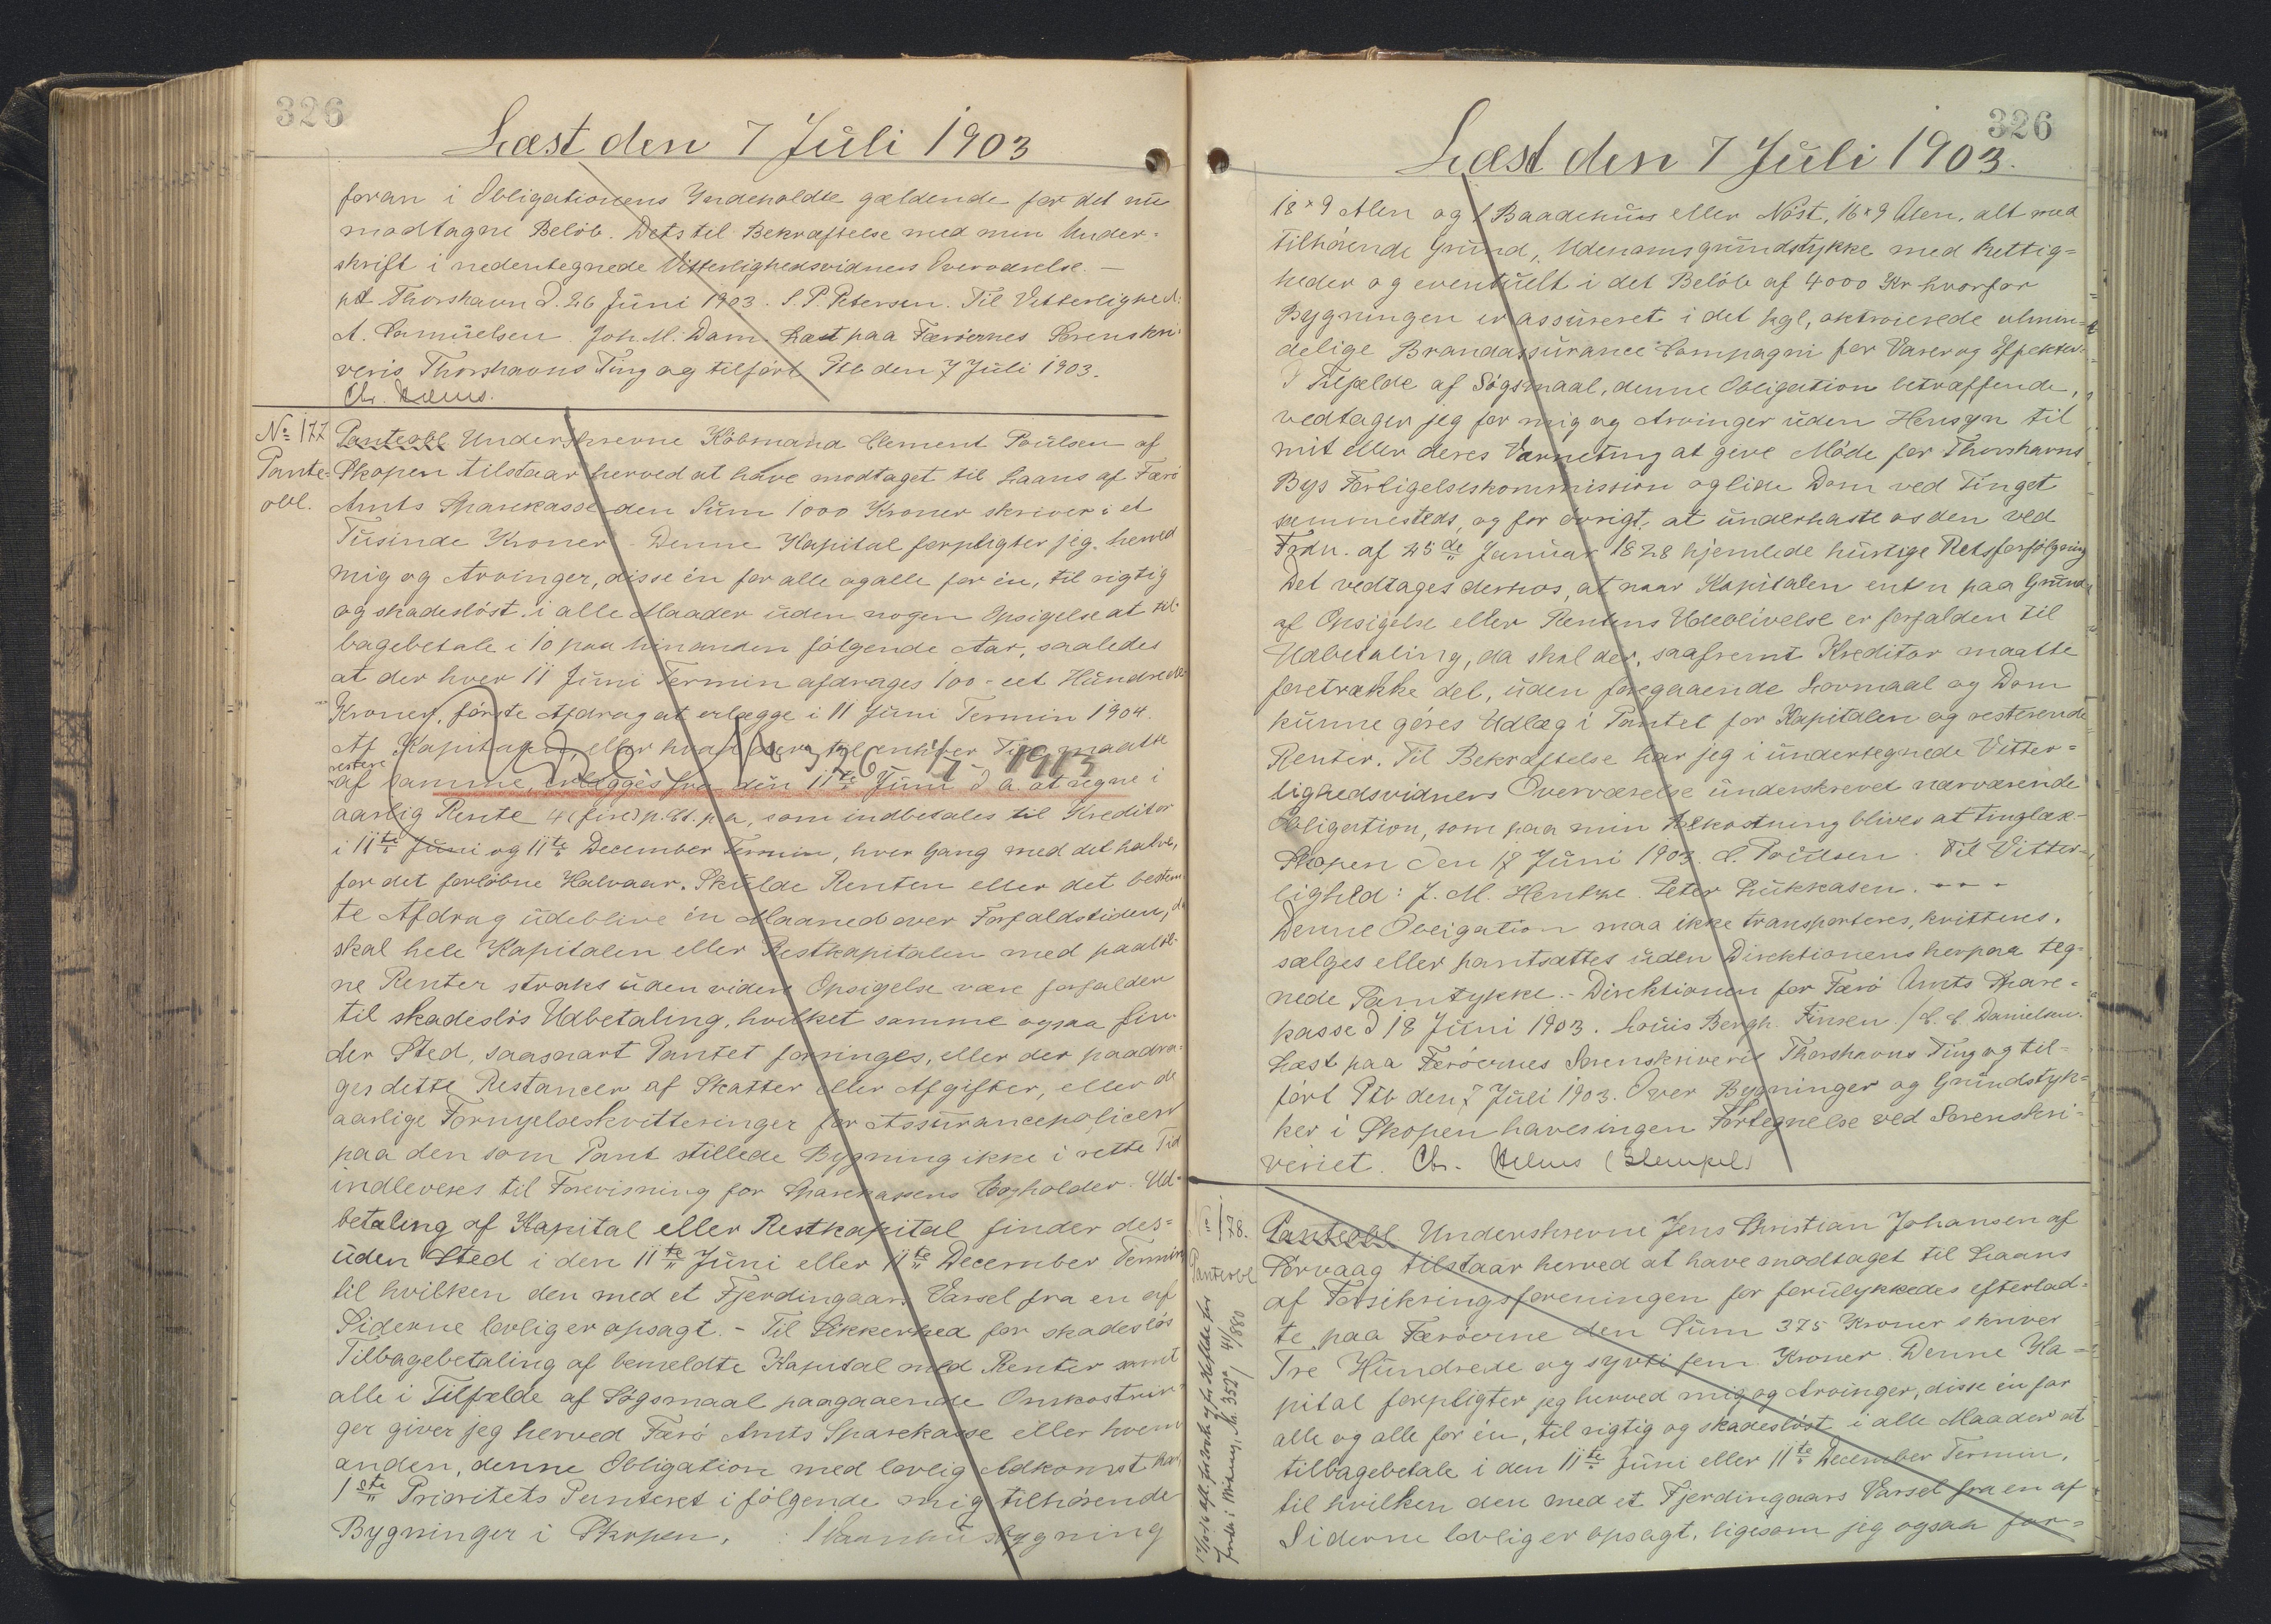 326
Læst den 7 Juli 1903
foran i Obligationens Indeholdte gældende for det nu
modtagne Beløb. Dets til Bekræftelse med min Under-
skrift i nedentegnede Vitterlighedsvidners Overværelse. —
pt Thorshavn d. 26 Juni 1903. S. P. Petersen. Til Vitterlighed:
A. Samuelsen. Joh. M. Dam. Læst paa Færøernes Sorenskri-
veris Thorshavns Ting og tilført Ptb den 7 Juli 1903.
Chr. Helms.
No 177
Pante-
obl.
Panteobl Underskrevne Købmand Clement Poulsen af
Skopen tilstaar herved at have modtaget til Laans af Færø
Amts Sparekasse den Sum 1000 Kroner skriver et
Tusinde Kroner. Denne Kapital forpligter jeg herved
mig og Arvinger, disse én for alle og alle for én, til rigtig
og skadesløst i alle Maader uden nogen Opsigelse at til-
bagebetale i 10 paa hinanden følgende Aar, saaledes
at der hver 11 Juni Termin afdrages 100 - eet Hundrede
Kroner, første Afdrag at erlægge i 11 Juni Termin 1904.
Af Kapitalen, eller hvad der til enhver Tid maatte
restere
af samme, erlægges fra den 11te Juni d. a. at regne i
1913
aarlig Rente 4 (fire) p. Ct. p. a., som indbetales til Kreditor
i 11te Juni og 11te December Termin, hver Gang med det halve,
for det forløbne Halvaar. Skulde Renten eller det bestem
te Afdrag udeblive én Maaned over Forfaldstiden, da
skal hele Kapitalen eller Restkapitalen med paaløb-
ne Renter straks uden videre Opsigelse være forfalden
til skadesløs Udbetaling, hvilket samme ogsaa fin-
der Sted, saasnart Pantet forringes, eller der paadra-
ges dette Restancer af Skatter eller Afgifter, eller de
aarlige Fornyelseskvitteringer for Assurancepolicen
paa den som Pant stillede Bygning ikke i rette Tid
indleveres til Forevisning for Sparekassens Bogholder. Ud-
betaling af Kapital eller Restkapital finder des-
uden Sted i den 11te Juni eller 11te December Termin
til hvilken den med et Fjerdingaars Varsel fra en af
Siderne lovlig er opsagt. - Til Sikkerhed for skadesløs
Tilbagebetaling af bemeldte Kapital med Renter samt
alle i Tilfælde af Søgsmaal paagaaende Omkostnin-
ger giver jeg herved Færø Amts Sparekasse eller hvem
anden, denne Obligation med lovlig Adkomst har
1ste Prioritets Panteret i følgende mig tilhørende
Bygninger i Skopen, : 1 Vaanhusbygning
326
Læst den 7 Juli 1903.
18 x 9 Alen og 1 Baadehuus eller Nøst, 16 x 9 Alen, alt med
tilhørende Grund, Udenomsgrundstykke med Rettig-
heder og eventuelt i det Beløb af 4000 Kr hvorfor
Bygningen er assureret i det kgl. oktroierede almin-
delige Brandassurance Compagni for Varer og Effekter.
I Tilfælde af Søgsmaal, denne Obligation betræffende,
vedtager jeg for mig og Arvinger uden Hensyn til
mit eller deres Værneting at give Møde for Thorshavns
Bys Forligelseskommission og lide Dom ved Tinget
sammesteds, og for øvrigt, at underkaste os den ved
Frdn. af 25de Januar 1828 hjemlede hurtige Retsforfølgning
Det vedtages derhos, at naar Kapitalen enten paa Grund
af Opsigelse eller Rentens Udeblivelse er forfalden til
Udbetaling, da skal der, saafremt Kreditor maatte
foretrække det, uden foregaaende Lovmaal og Dom
kunne gøres Udlæg i Pantet for Kapitalen og resterende
Renter. Til Bekræftelse har jeg i undertegnede Vitter-
lighedsvidners Overværelse underskrevet nærværende
Obligation, som paa min Bekostning bliver at tinglæse.
Skopen den 17 Juni 1903. C. Poulsen. Til Vitter-
lighed: J. M. Hentze. Peter Lukkasen.
Denne Obligation maa ikke transporteres, kvitteres,
sælges eller pantsættes uden Direktionens herpaa teg-
nede Samtykke. - Direktionen for Færø Amts Spare-
kasse d 18 Juni 1903. Louis Bergh. Finsen. / C. C. Danielsen.
Læst paa Færøernes Sorenskriveris Thorshavns Ting og til-
ført Ptb den 7 Juli 1903. Over Bygninger og Grundstyk-
ker i Skopen haves ingen Fortegnelse ved Sorenskri-
veriet. Chr. Helms (Stempel)
No 178.
Panteobl
Panteobl Underskrevne Jens Christian Johansen af
Sørvaag tilstaar herved at have modtaget til Laans
af Forsikringsforeningen for forulykkedes efterlad-
te paa Færøerne den Sum 375 Kroner skriver
Tre Hundrede og syvti fem Kroner. Denne Ka-
pital forpligter jeg herved mig og Arvinger, disse én for
alle og alle for én, til rigtig og skadesløst i alle Maader at
tilbagebetale i den 11te Juni eller 11te December Termin,
til hvilken den med et Fjerdingaars Varsel fra en af
Siderne lovlig er opsagt, ligesom jeg ogsaa for-